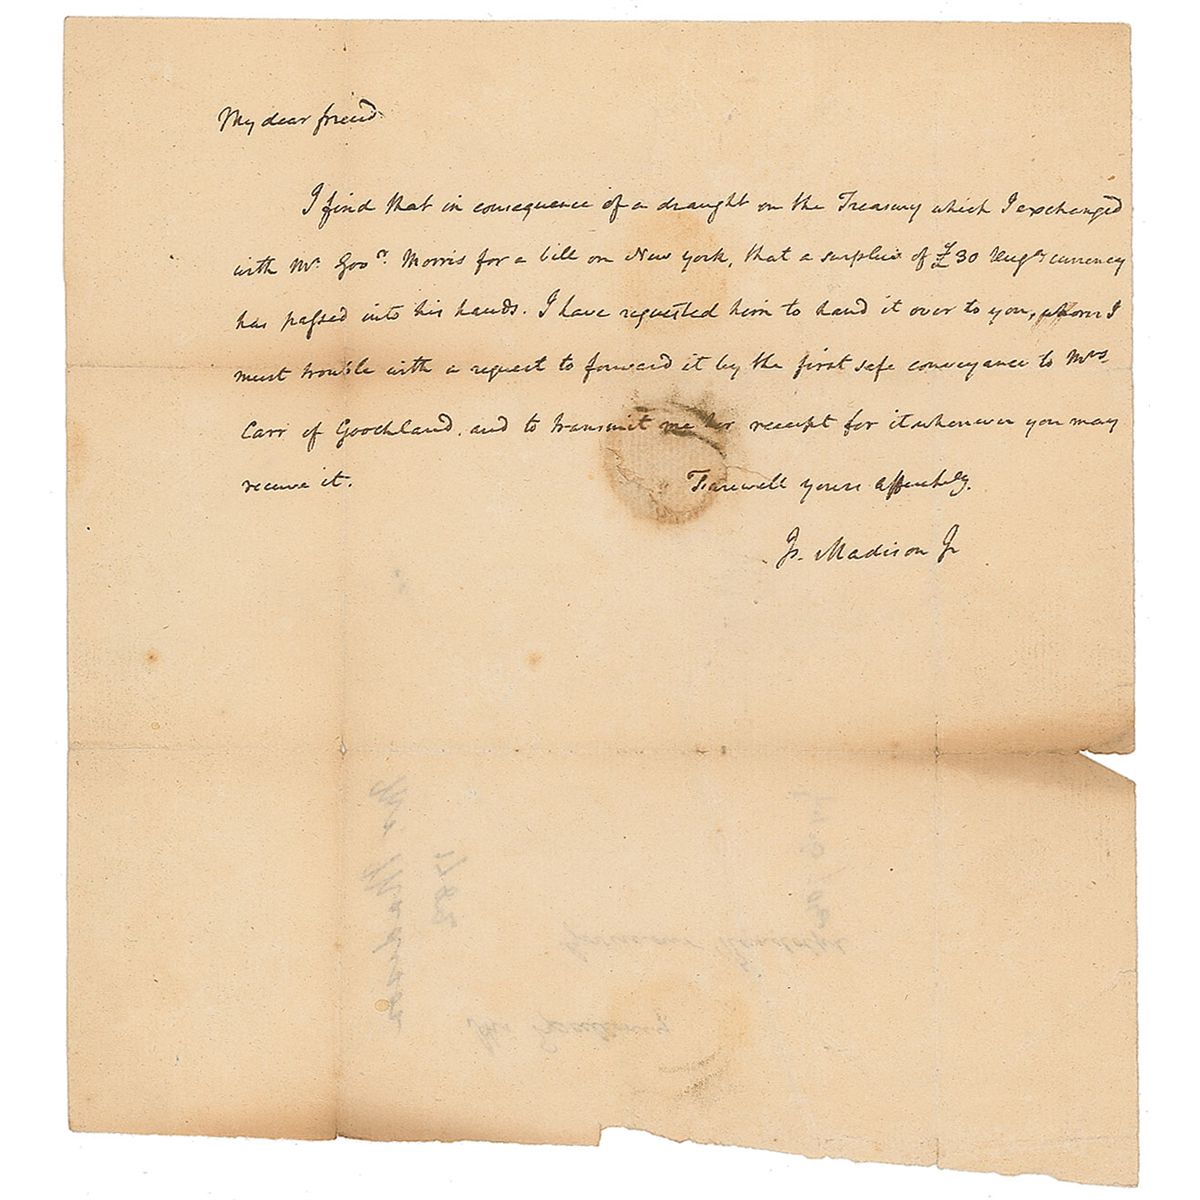 My dear friend
I find that in consequence of a draught on the Treasury which I exchanged
with Mr. Govr. Morris for a bill on New York, that a surplus of £30 Virga. currency
has passed into his hands. I have requested him to hand it over to you, whom I
must trouble with a request to forward it by the first safe conveyance to Mrs
Carr of Goochland. and to transmit me her receipt for it whenever you may
receive it. Farewell yours affectely.
Js. Madison Jr